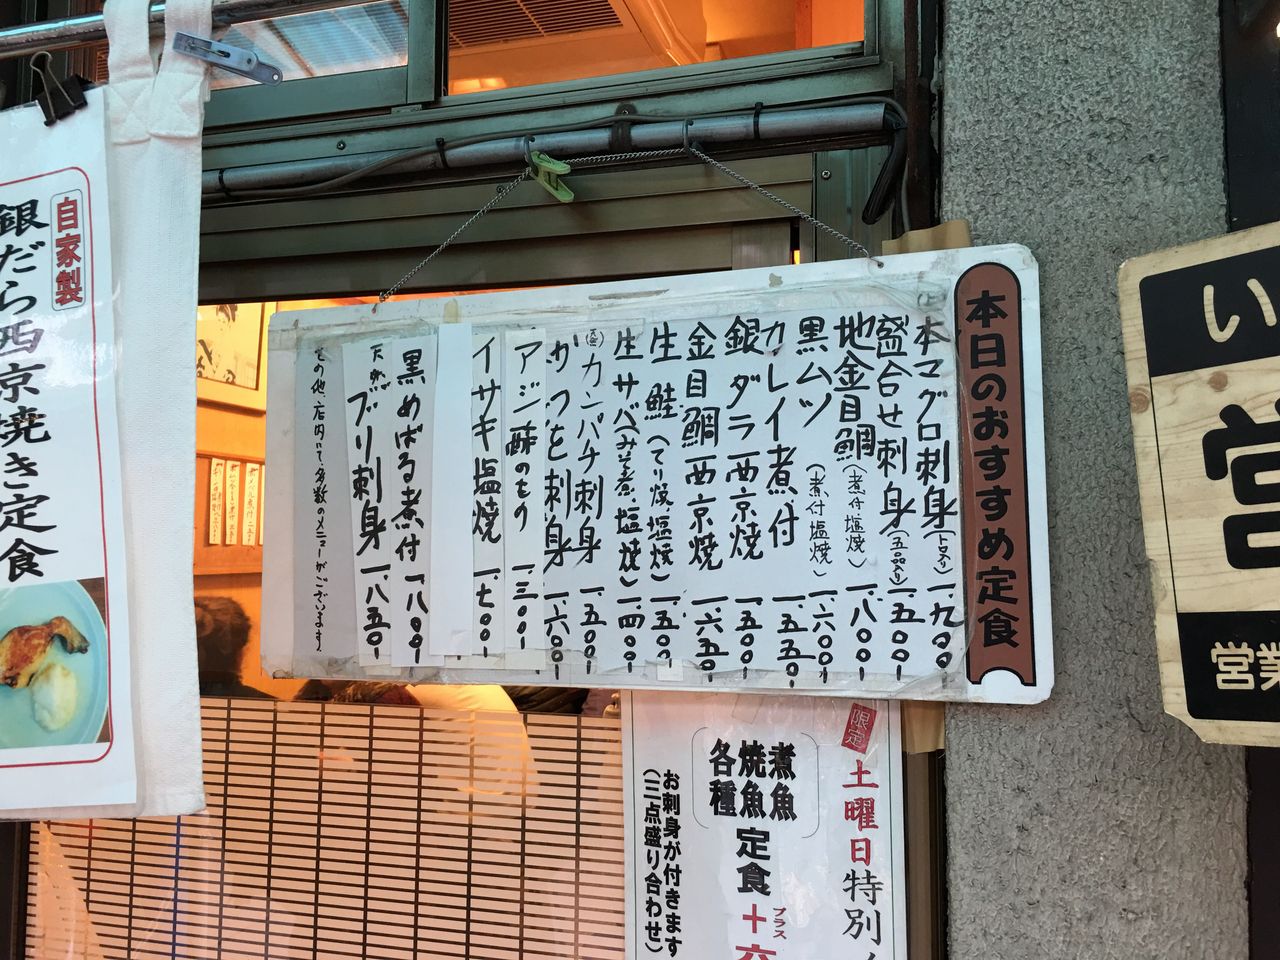 本日のおすすめ定食
本マグロ刺身(トロ入り)一、九〇〇-
盛合せ刺身(五品入り)一、五〇〇-
地金目鯛(煮付塩焼)一、八〇〇-
黒ムツ(煮付塩焼)一、六〇〇-
カレイ煮付一、五五〇-
銀ダラ西京焼一、五〇〇-
金目鯛西京焼一、六五〇-
生鮭(てり焼、塩焼)一、五〇〇-
生サバ(みそ煮、塩焼)一、四〇〇-
カンパチ刺身一、五〇〇-
かつを刺身一、六〇〇-
アジ酢のもの一、三〇〇-
イサキ塩焼一、七〇〇-
黒めばる煮付一、八〇〇-
天然ブリ刺身一、八五〇-
その他、店内にて多数のメニューがございます
自家製
銀だら西京焼き定食
限定
土曜日特別
煮魚
焼魚
各種
定食+
プラス
お刺身が付きます
(三点盛り合わせ)
い
営
営業